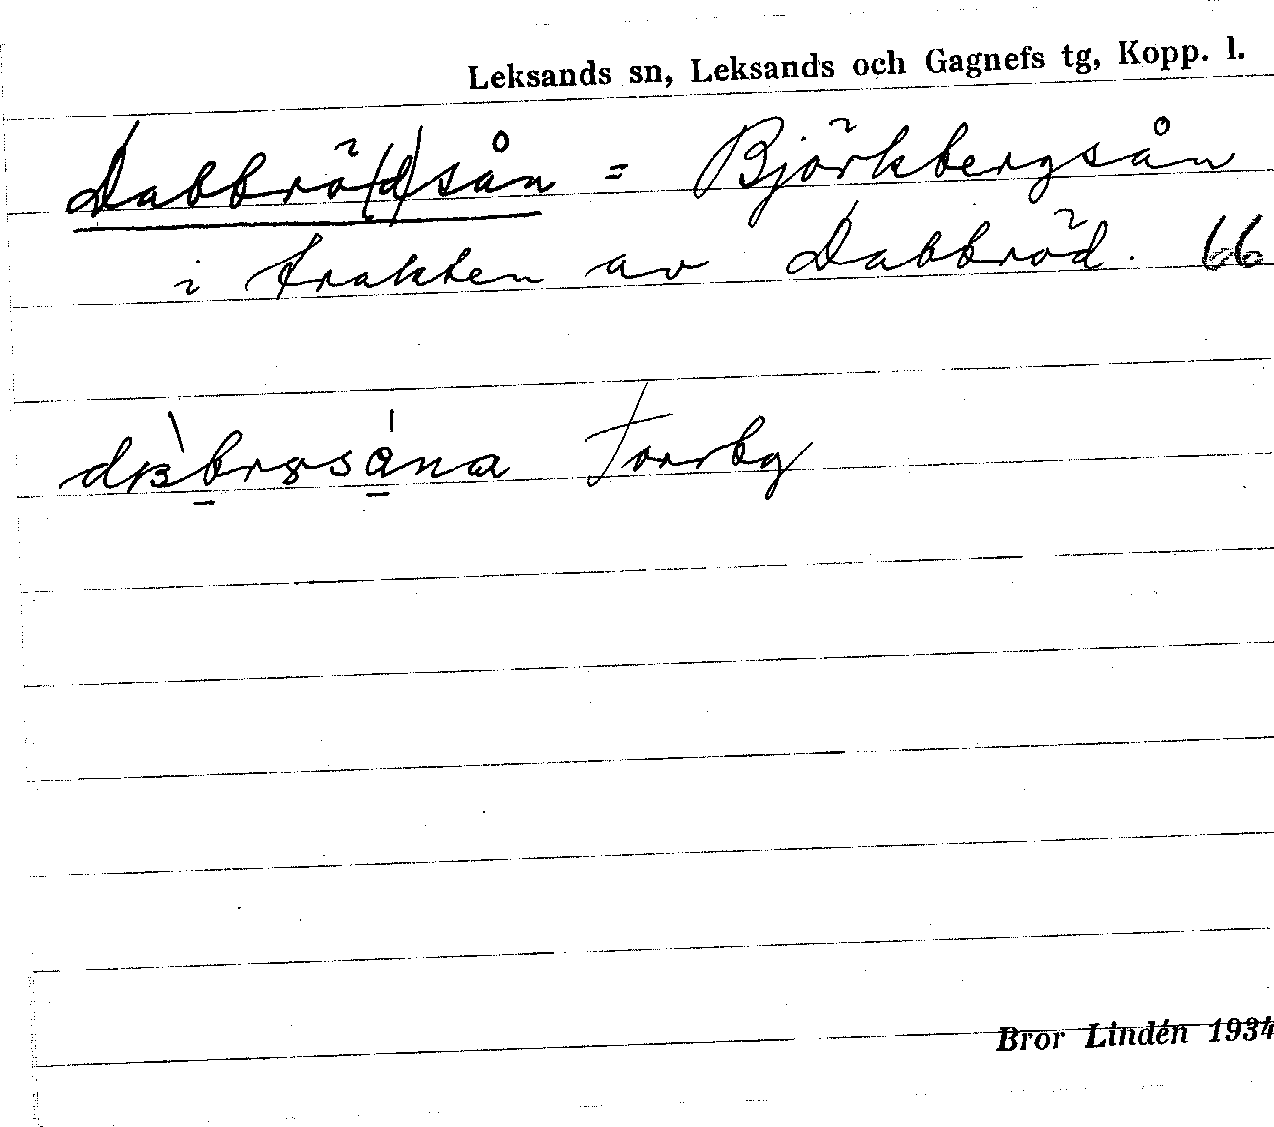 Leksands sn, Leksands och Gagnefs tg, Kopp. l.
Dabbrö(d)sån = Björkbergsån
i trakten av Dabbröd. 66
Torrbg
Bror Lindén 1934